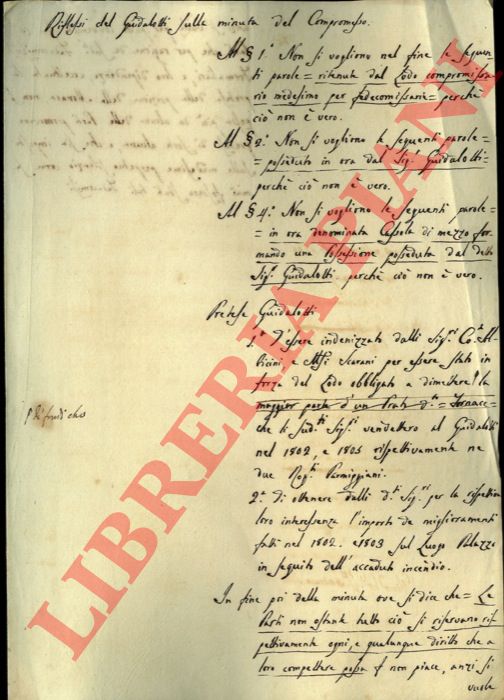 Riflessi del Guidalotti sulla minuta del Compromesso.
Al § 1.° Non si vogliono nel fine le seguen-
ti parole = ritenuta dal Lodo compromissa-
rio medesimo per fedecomissaria = perchè
ciò non è vero.
Al § 2.° Non si vogliono le seguenti parole =
= posseduto in ora dal Sig.r Guidalotti =
perchè ciò non è vero.
Al § 4.° Non si vogliono le seguenti parole =
= in ora denominata Casola di mezzo for-
mando una Possessione posseduta dal detto
Sig.r Guidalotti = perchè ciò non è vero.
Pretese Guidalotti
1.° D'essere indenizzato dalli Sig.ri Co. Al-
bicini e Scarani per essere stato in
forza del Lodo obbligato a dimettere la
maggior parte d'un Prato d.to = Fornace =
che li sud.ti Sig.ri vendettero al Guidalotti
nel 1802, e 1803 rispettivamente ne
due Rog.ti Parmiggiani.
2.° di ottenere dalli d.ti Sig.ri per la rispettiva
loro interessenza l'importo de miglioramenti
fatti nel 1802. e 1803 sul Luogo Palazzo
in seguito dell'accaduto incendio.
In fine poi della minuta ove si dice che = Le
Parti non ostante tutto ciò si riservano ris-
pettivamente ogni, e qualunque diritto che a
loro compettere possa non piace, anzi si
vuole
LIBRERIA PIANI